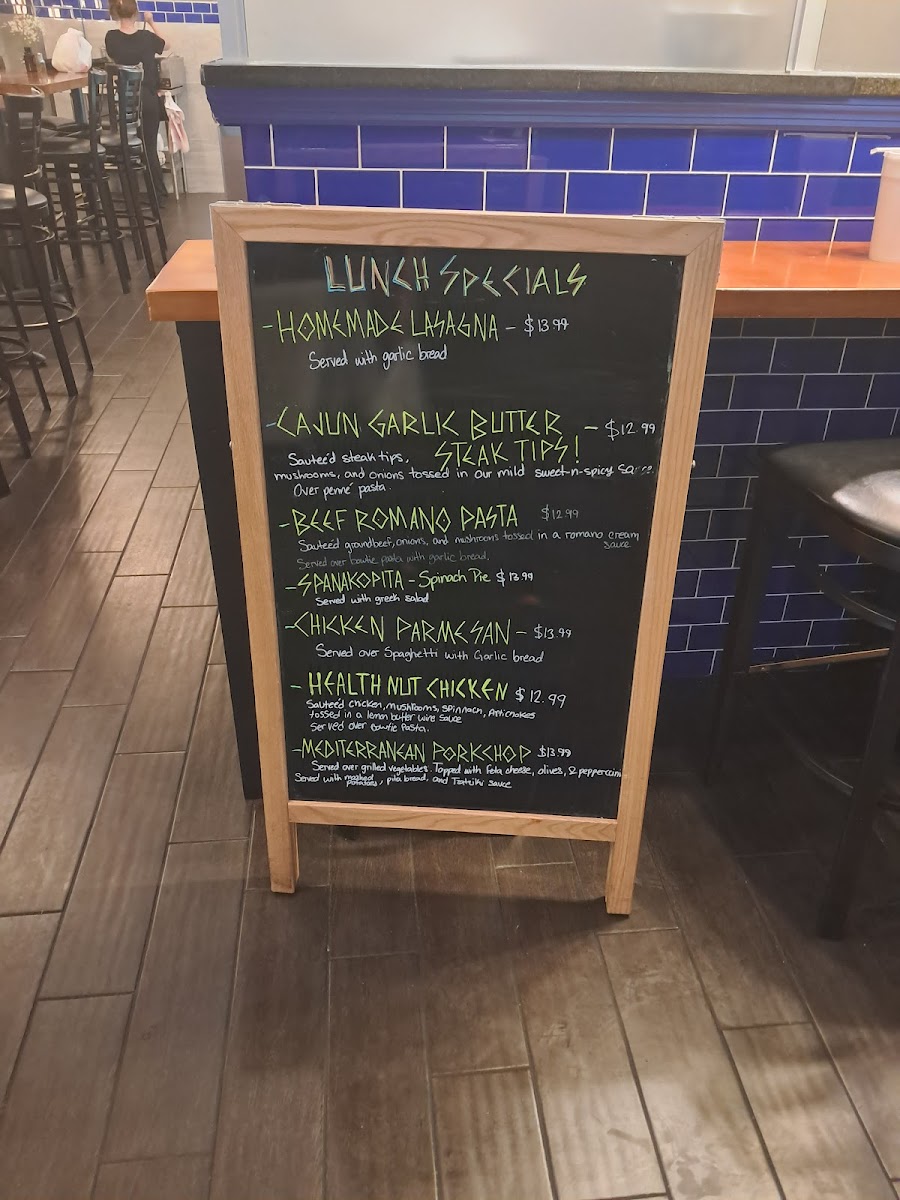 LUNCH SPECIALS
-HOMEMADE LASAGNA - $13.99
Served with garlic bread
-CAJUN GARLIC BUTTER - $12.99
STEAK TIPS!
Sautee'd steak tips,
mushrooms, and onions tossed in our mild sweet-n-spicy sauce.
Over penne' pasta.
-BEEF ROMANO PASTA $12.99
Sautee'd groundbeef, onions, and mushrooms tossed in a romano cream
sauce
Served over bowtie pasta with garlic bread.
-SPANAKOPITA - Spinach Pie $13.99
Served with greek salad
-CHICKEN PARMESAN - $13.99
Served over Spaghetti with Garlic bread
- HEALTH NUT CHICKEN $12.99
Sautee'd chicken, mushrooms, spinnach, Artichokes
tossed in a lemon butter wine sauce
Served over bowtie Pasta.
-MEDITERRANEAN PORKCHOP $13.99
Served over grilled vegetables. Topped with feta cheese, olives, & peppercini
Served with mashed potatoes, pita bread, and Tzatziki sauce